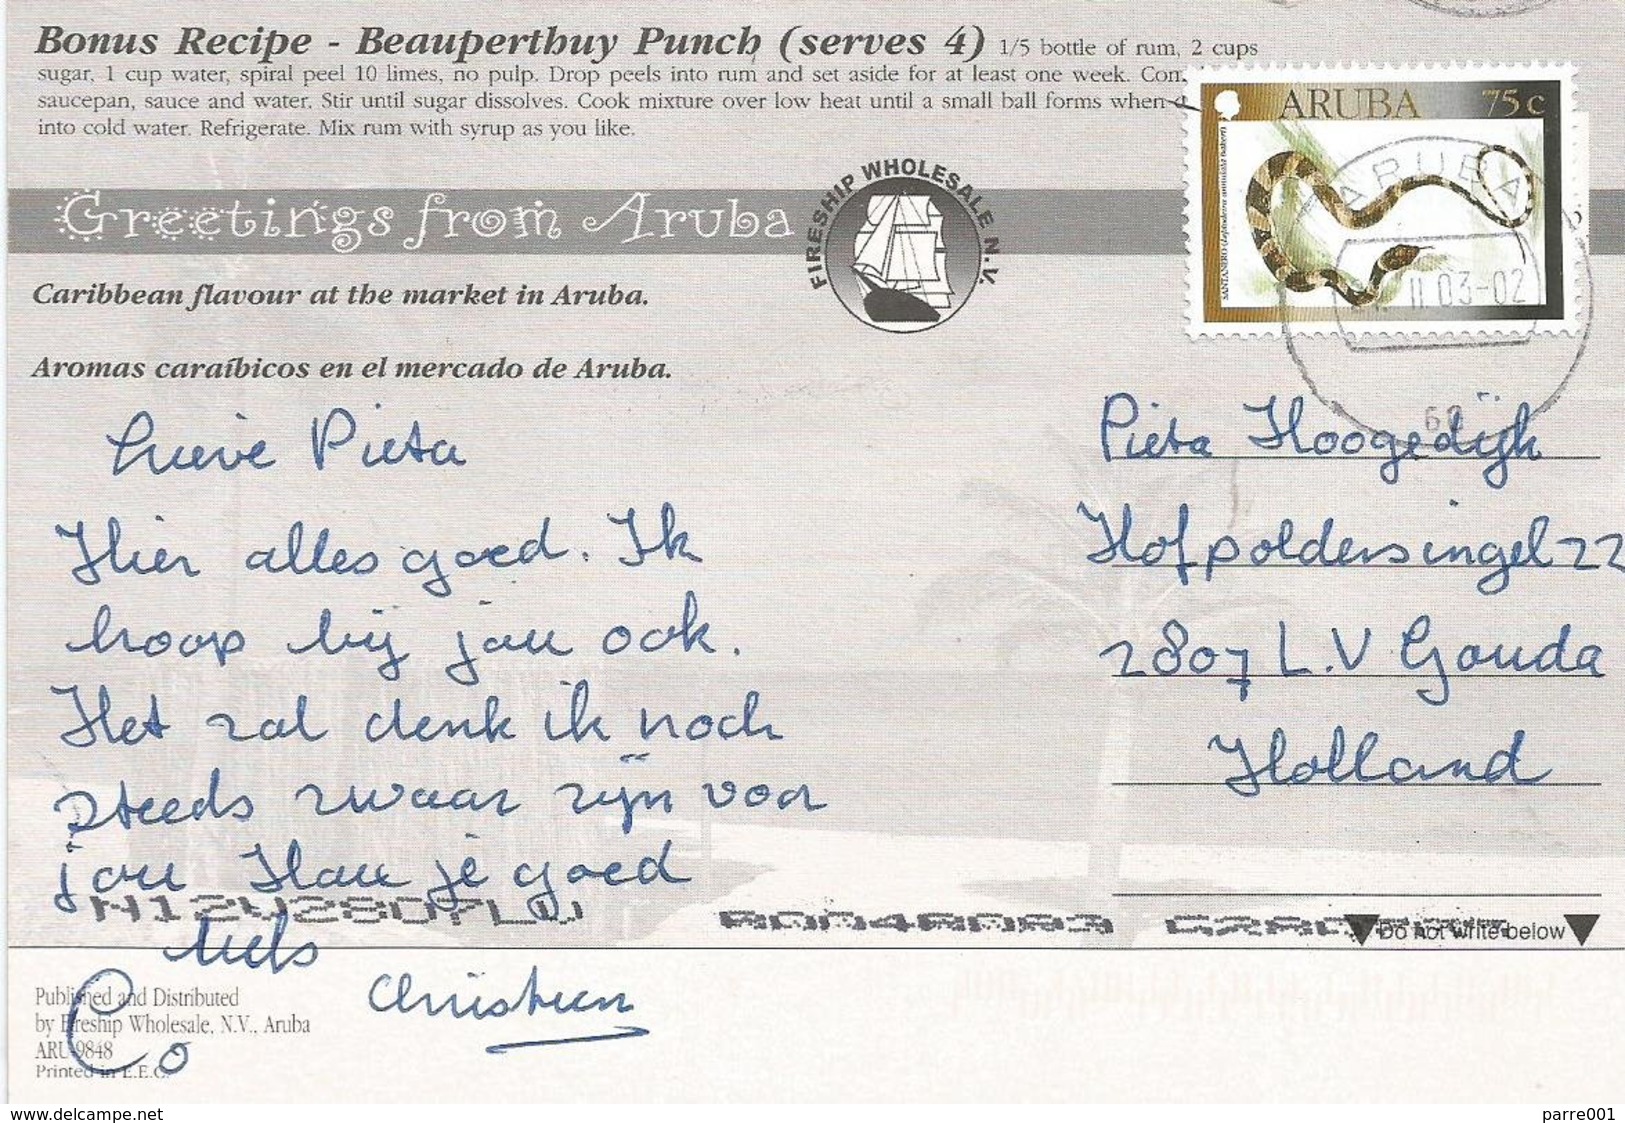 Bonus Recipe - Beauperthuy Punch (serves 4) 1/5 bottle of rum, 2 cups
sugar, 1 cup water, spiral peel 10 limes, no pulp. Drop peels into rum and set aside for at least one week. Com
saucepan, sauce and water. Stir until sugar dissolves. Cook mixture over low heat until a small ball forms when
into cold water. Refrigerate. Mix rum with syrup as you like.
ARUBA 75 c
SANTANERO (Leptodeira annulata bakeri)
ARUBA
11 03-02
Greetings from Aruba
FIRESHIP WHOLESALE N.V.
Caribbean flavour at the market in Aruba.
Aromas caraíbicos en el mercado de Aruba.
Lieve Pieta
Hier alles goed. Ik
hoop bij jou ook.
Het zal denk ik noch
steeds zwaar zijn voor
jou Hou je goed
liefs
Co Christien
Pieta Hoogedijk
Hofpoldersingel 22
2807 L.V Gouda
Holland
Do not write below
Published and Distributed
by Fireship Wholesale, N.V., Aruba
ARU-9848
Printed in E.E.C.
www.delcampe.net
parre001